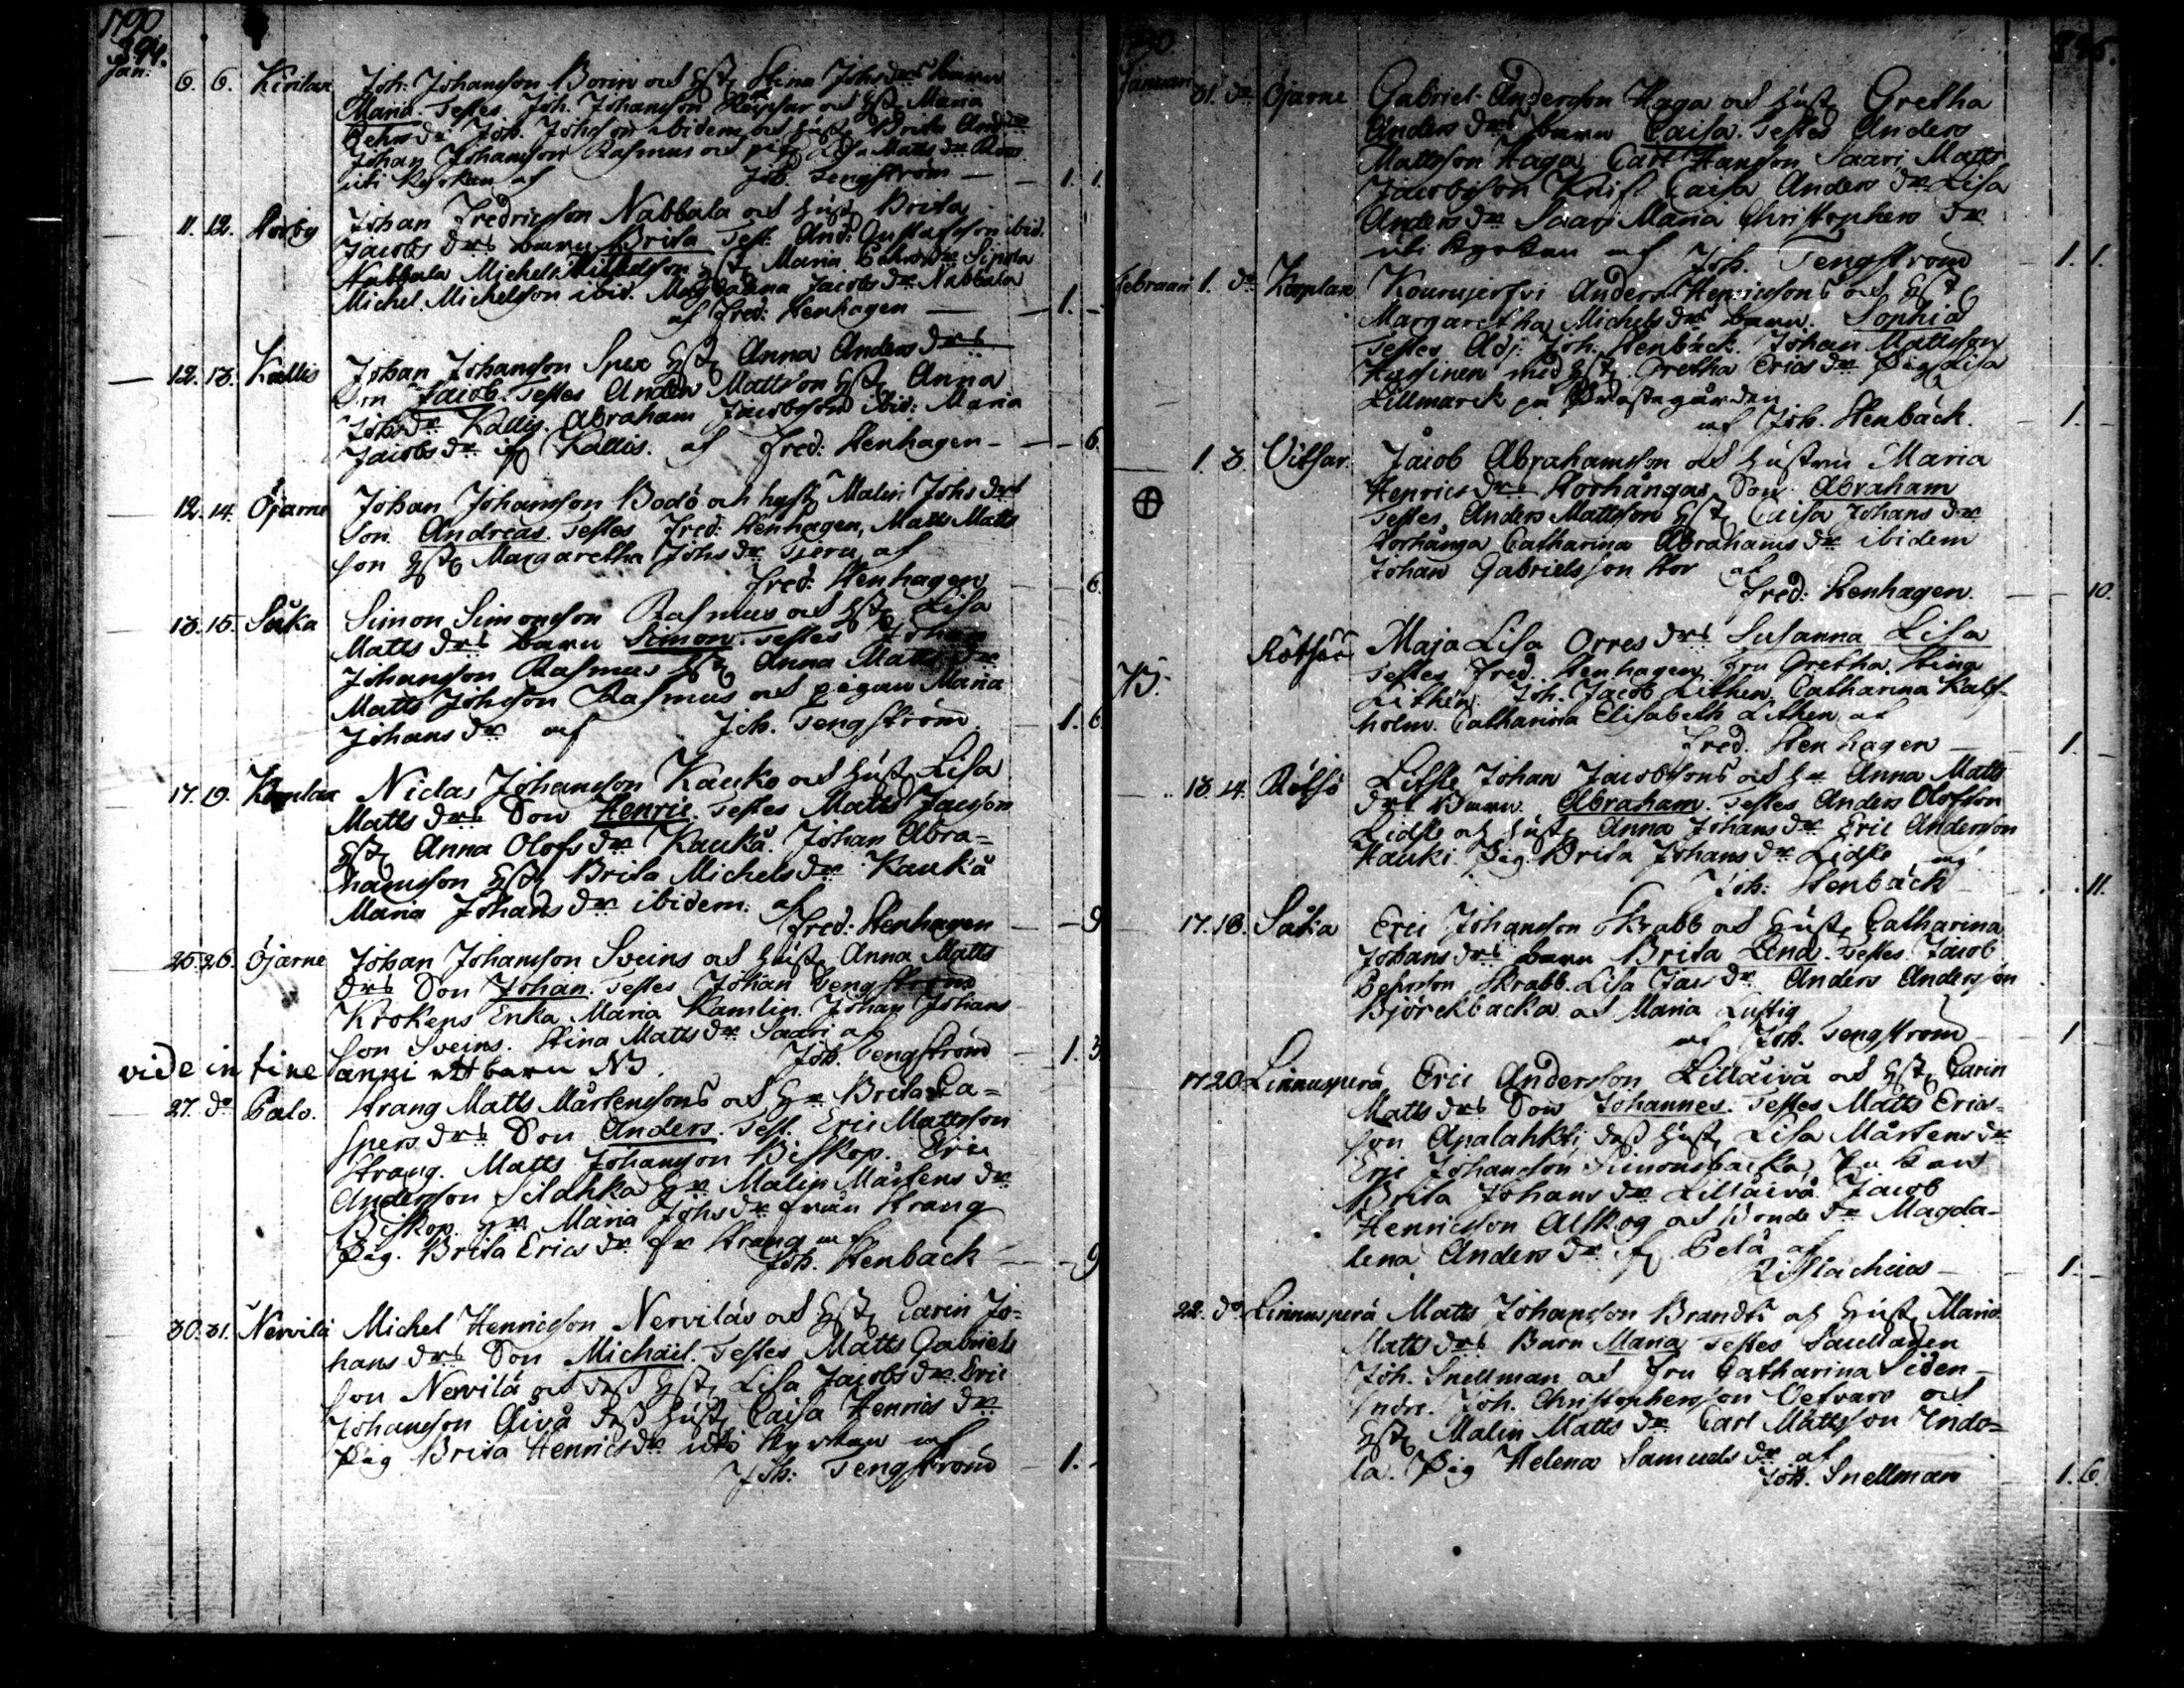 1790
394.
Jan:
6. 6. Kirilax Joh: Johansson Borin och Hst. Stina Johsdrs barn
Maria. Testes Joh. Johansson och Hst. Maria
Joh. Johsson ibidem och Hust. Brita And
Johan Johansson Rasmus och pig. Lisa Matts dr
uti Kyrkan af Joh. Tengström — 1. 1.
11. 12. Storby Johan Fredricsson Nabbala och Hust. Brita
Jacobs drs barn Brita Test: And: Gustafsson ibid.
Nabbala Michel Michelsson Hst. Maria dr Sipola
Michel Michelson ibid. Magdalena Jacobs dr Nabbala
af Fred: Stenhagen — 1. -
12. 13. Kallis Johan Johansson Spex Hst. Anna Anders drs
Son Jacob. Testes Anders Mattsson Hst. Anna
Johs dr Kallis. Abraham Jacobsson ibid: Maria
Jacobs dr Kallis. af Fred: Stenhagen - - 6.
12. 14. Öjarne Johan Johansson Bodö och hust. Malin Johs drs
Son Andreas. Testes Fred: Stenhagen, Matts Matts
son Hst. Margaretha Johs dr af
Fred: Stenhagen 6.
13. 15. Såka Simon Simonsson Rasmus och Hst. Lisa
Matts drs barn Simon. Testes Johan
Johansson Rasmus Hst. Anna Matts dr
Matts Johsson Rasmus och pigan Maria
Johans dr af Joh. Tengström 1. 6
17. 19. Koplax Niclas Johansson Kauko och Hust. Lisa
Matts drs Son Henric. Testes Matts Jacsson
Hst. Anna Olofs dr Kaukå. Johan Abra=
hamsson Hst. Brita Michels dr Kaukå
Maria Johans dr ibidem. af
Fred: Stenhagen — 9
25. 26. Öjarne Johan Johansson Sveins och Hust. Anna Matts
drs Son Johan. Testes Johan Tengström
Krokens Enka Maria Kamlin Johan Johans
son Sveins. Stina Matts dr Saari af
Joh. Tengström 1. 3
vide in fine anni ett barn NB.
27. do Palo. Strang Matts Mårtenssons och Hr Brita Ca=
spers drs Son Anders. Test. Eric Mattsson
Strang. Matts Johansson Biskop. Eric
Andersson Silahka Hr Malin Mårtens dr
Biskop. Hr Maria Johs dr från Strang
Pig. Brita Erics dr fr Strang af
Joh. Stenbäck — 9
30. 31. Nervilä Michel Henricsson Nerviläs och Hst. Carin Jo=
hans drs Son Michaël. Testes Matts Gabriels
son Nervilä och dess Hst. Lisa Jacobs dr. Eric
Johansson Åivå dess Hust. Caisa Henrics dr
Pig Brita Henrics dr uti Kyrkan af
Joh: Tengström — 1. -
1790.
395.
Januari 31. do Öjarne Gabriel Andersson Haga och Hust. Gretha
Anders drs barn Caisa. Testes Anders
Mattsson Haga Carl Hansson Saari Matts
Jacobsson Knif Caisa Anders dr Lisa
Anders dr Saari Maria Christophers dr
uti Kyrkan af Joh. Tengström 1. 1.
Februari 1. do Koplax Kourujerfvi Anders Henricssons och Hst.
Margaretha Michels drs barn. Sophia
Testes Adj: Joh. Stenbäck. Johan Mattsson
Hassinen med Hst. Gretha Erics dr Pig Lisa
Lillmarck på Prästegården
af Joh. Stenbäck. 1. -
1. 3 Vitsar. Jacob Abrahamsson och Hustru Maria
Henrics drs Storhångas Son Abraham
Testes Anders Mattsson Hst. Caisa Johans dr
Storhånga Catharina Abrahams dr ibidem
Johan Gabrielsson Stor af
Fred: Stenhagen. — 10.
NB. Rötsöö Maja Lisa Orres drs Susanna Lisa
Testes Fred. Stenhagen Fru Gretha Stina
Lithén. Joh. Jacob Lithen. Catharina Kalf-
holm. Catharina Elisabeth Lithen af
Fred. Stenhagen — 1. -
13. 14. Rötsö Lifsle Johan Jacobssons och Hr Anna Matts
drs Barn. Abraham. Testes Anders Olofsson
Lidsle och Hust. Anna Johans dr Eric Andersson
Hauki Pig. Brita Johans dr Lidsle af
Joh: Stenbäck 11.
17. 18. Såka Eric Johansson Skrabb och Hust. Catharina
Johans drs barn Brita Lena. Testes Jacob
Pehrsson Skrabb. Lisa Jacs dr Anders Andersson
Björckbacka och Maria Lustig
af Joh. Tengström 1
17. 20 Linnusperä Eric Andersson Lillåivå och Hst. Carin
Matts drs Son Johannes. Testes Matts Erics=
son Apalahkti dess Hust. Lisa Mårtens dr
Eric Johansson Simonsbacka
Brita Johans dr Lillåivå. Jacob
Henricsson Alskog och Bonde dr Magda-
lena Anders dr fr Pelå af
1. -
22. do Linnusperä Matts Johansson Brandts och Hust. Maria
Matts drs Barn Maria Testes
Joh. Snellman och Fru Catharina Siden-
Joh. Christophersson Vetvare och
Hst. Malin Matts dr Carl Mattsson Indo=
la. Pig Helena Samuels dr af
Joh. Snellman 1. 6.